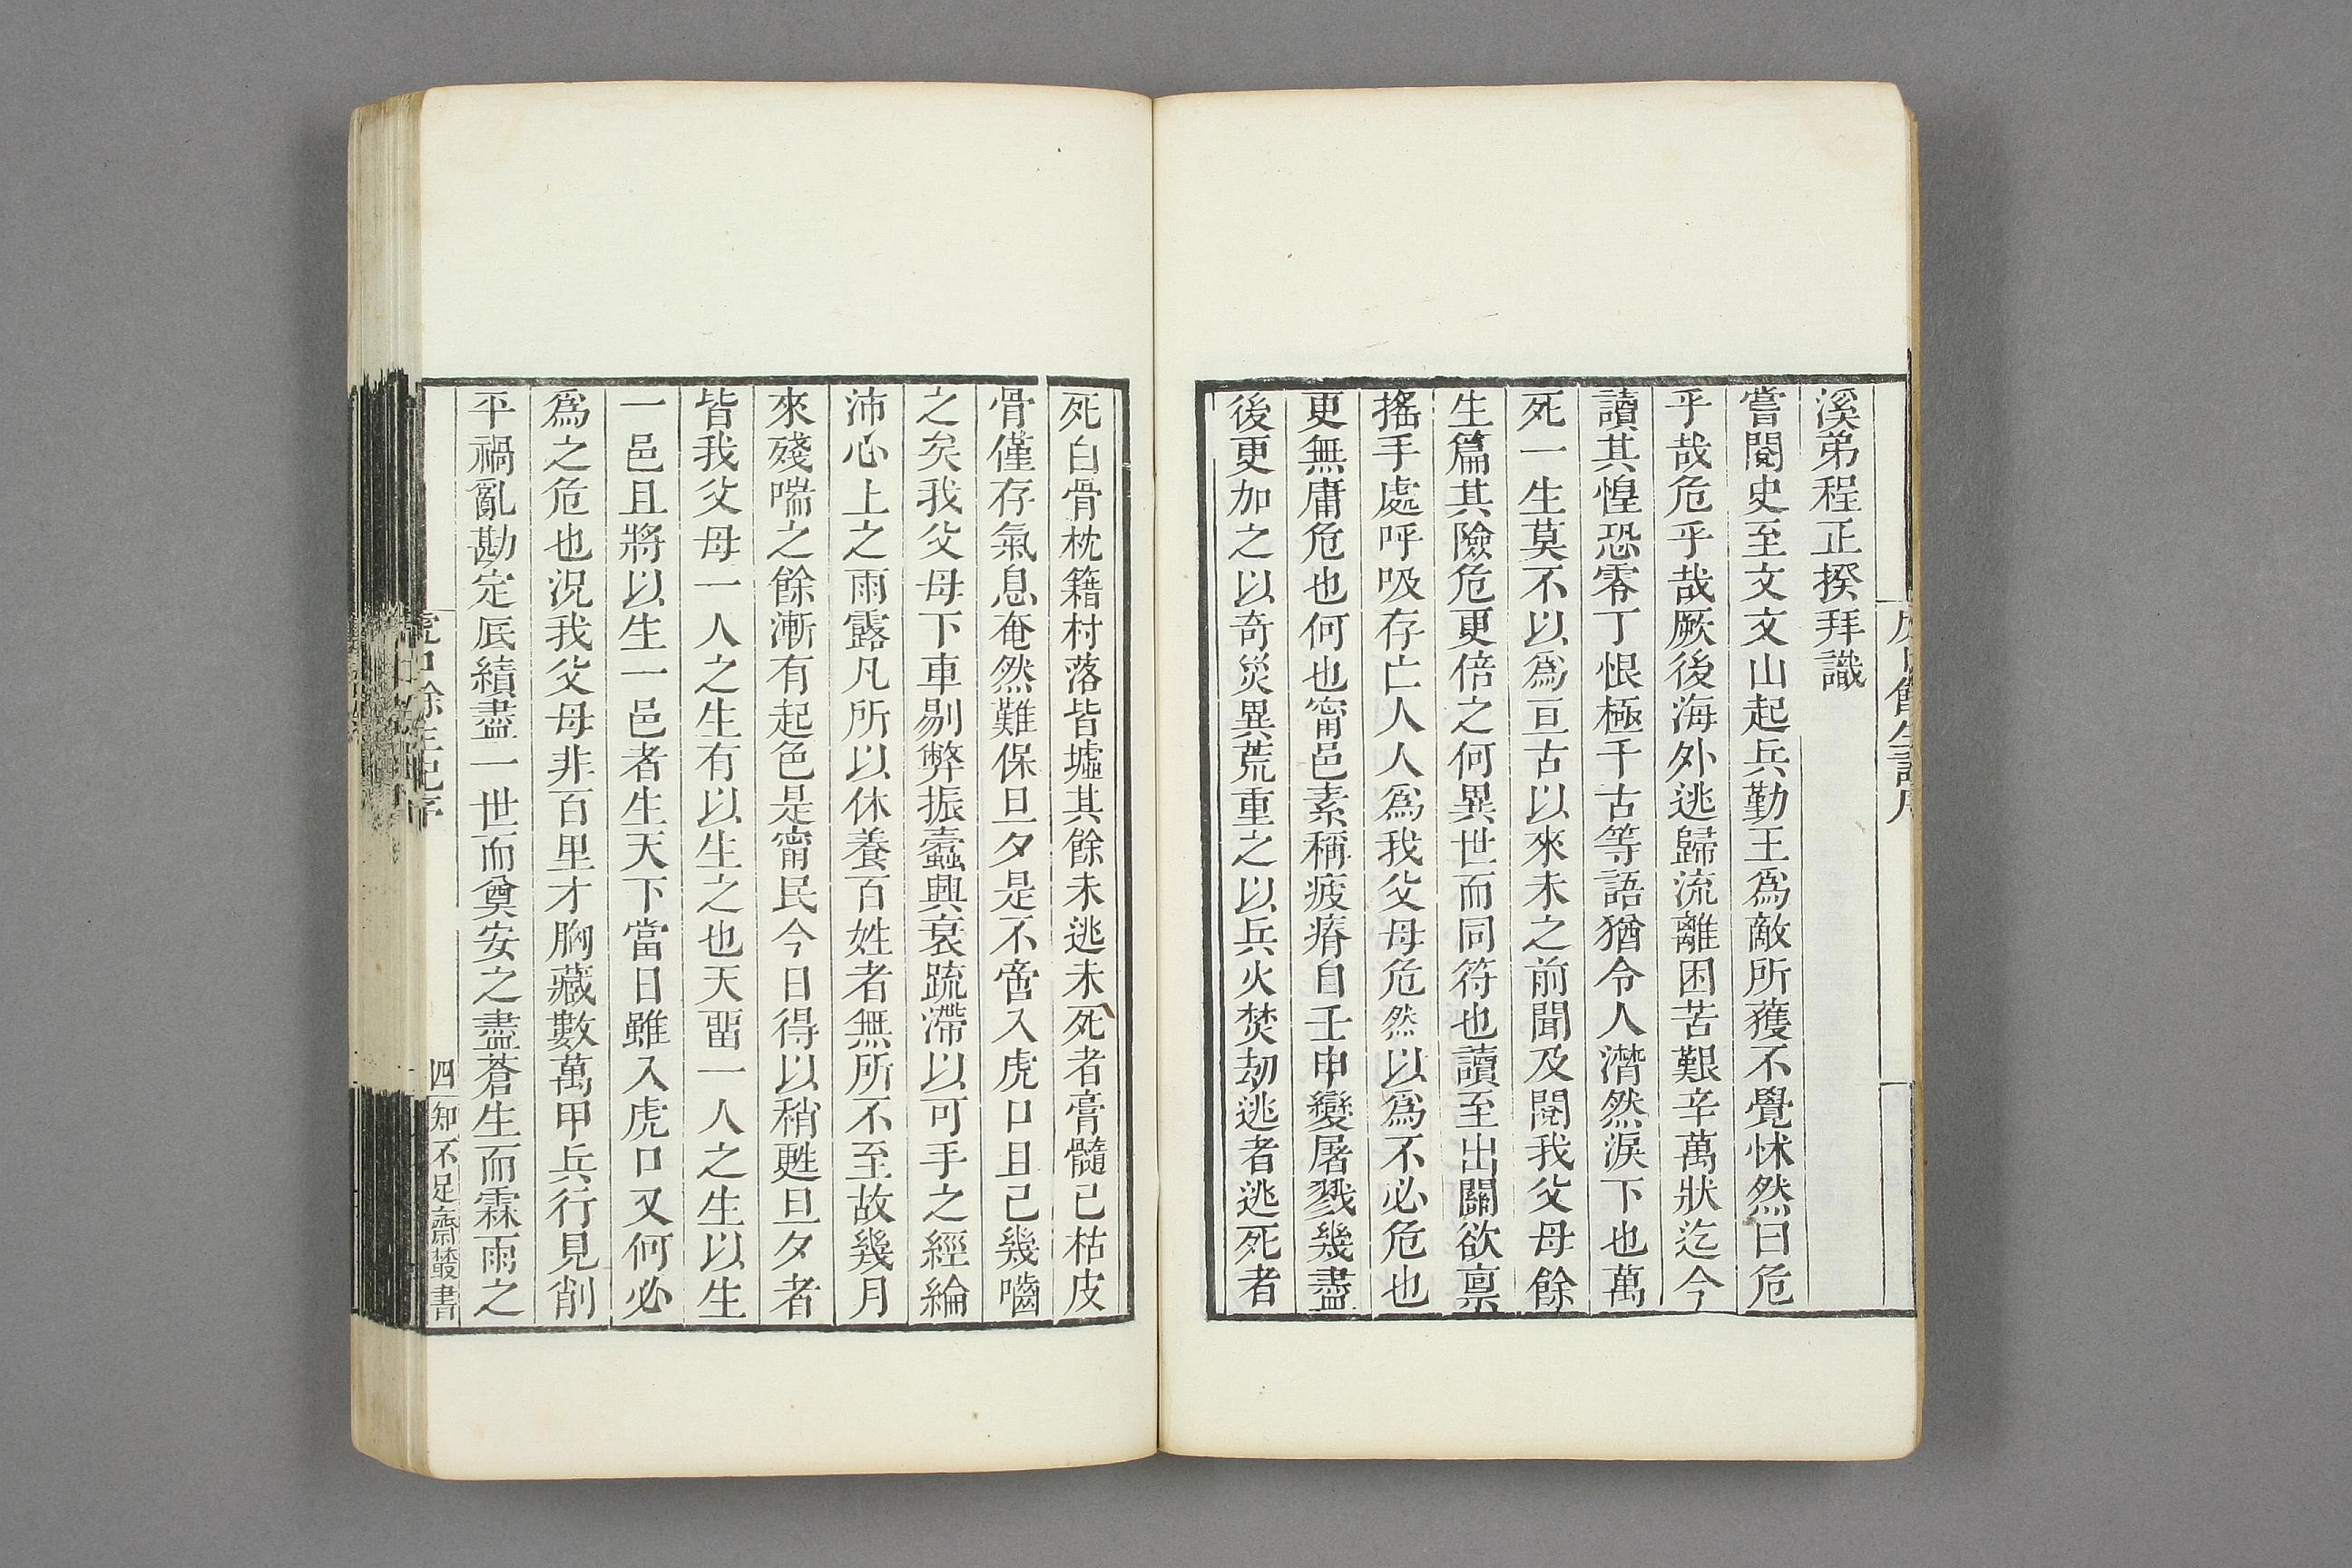 溪弟程正揆拜識
嘗閱史至文文山起兵勤王爲敵所獲不覺怵然曰危
乎哉危乎哉厥後海外逃歸流離困苦艱辛萬狀迄今
讀其惶恐零丁恨極千古等語猶令人潸然淚下也萬
死一生莫不以爲亘古以來未之前聞及閱我父母餘
生篇其險危更倍之何異世而同符也讀至出關欲稟
搖手處呼吸存亡人人爲我父母危然以爲不必危也
更無庸危也何也甯邑素稱疲瘠自壬申變屠戮幾盡
後更加之以奇災異荒重之以兵火焚劫逃者逃死者
死白骨枕籍村落皆墟其餘未逃未死者膏髓已枯皮
骨僅存氣息奄然難保旦夕是不啻入虎口且已幾嚙
之矣我父母下車剔弊振蠹興衰疏滯以可手之經綸
沛心上之雨露凡所以休養百姓者無所不至故幾月
來殘喘之餘漸有起色是甯民今日得以稍甦旦夕者
皆我父母一人之生有以生之也天畱一人之生以生
一邑且將以生一邑者生天下當日雖入虎口又何必
爲之危也況我父母非百里才胸藏數萬甲兵行見削
平禍亂勘定厎績盡一世而奠安之盡蒼生而霖雨之
虎口餘生記序
四
知不足齋叢書